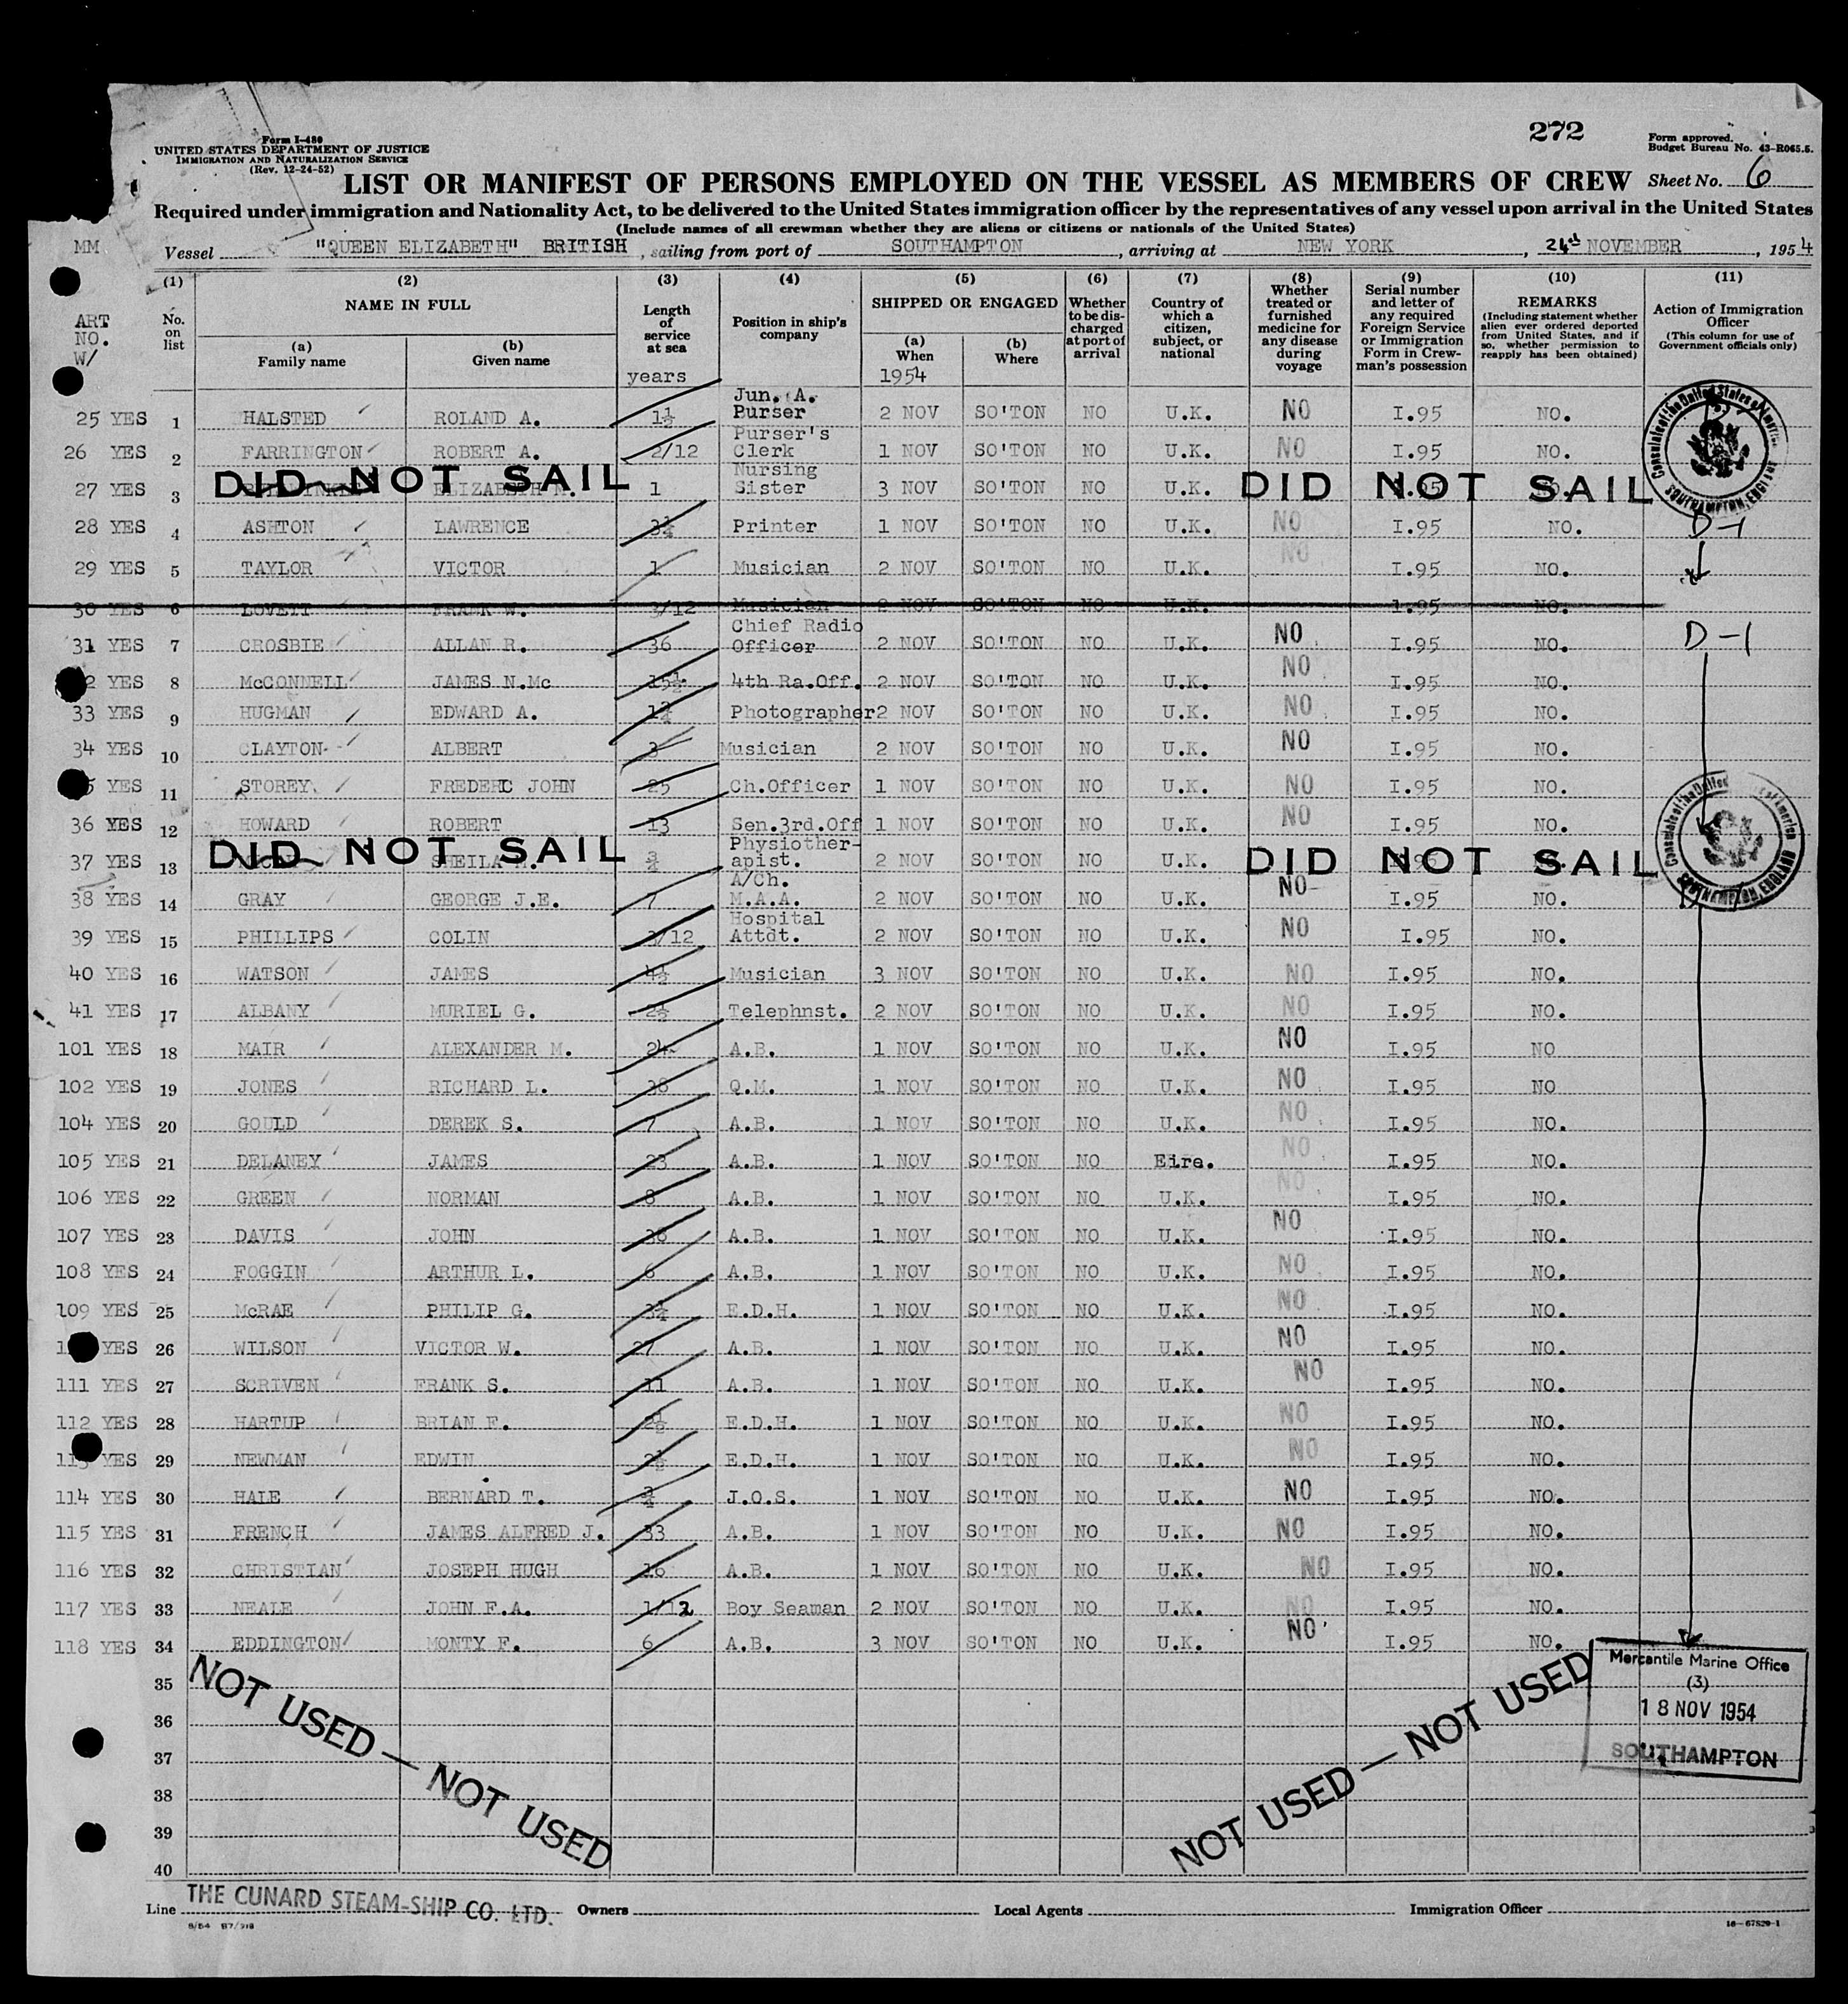 272
Form I-480
UNITED STATES DEPARTMENT OF JUSTICE
IMMIGRATION AND NATURALIZATION SERVICE
(Rev. 12-24-52)
Form approved.
Budget Bureau No. 43-R065.5.
LIST OR MANIFEST OF PERSONS EMPLOYED ON THE VESSEL AS MEMBERS OF CREW Sheet No. 6
Required under immigration and Nationality Act, to be delivered to the United States immigration officer by the representatives of any vessel upon arrival in the United States
(Include names of all crewman whether they are aliens or citizens or nationals of the United States)
MM Vessel "QUEEN ELIZABETH" BRITISH, sailing from port of SOUTHAMPTON, arriving at NEW YORK, 24th NOVEMBER, 1954
(1) (2) (3) (4) (5) (6) (7) (8) (9) (10) (11)
ART NO. W/
No. on list
NAME IN FULL
(a) Family name (b) Given name
Length of service at sea
years
Position in ship's company
SHIPPED OR ENGAGED
(a) When (b) Where
1954
Whether to be discharged at port of arrival
Country of which a citizen, subject, or national
Whether treated or furnished medicine for any disease during voyage
Serial number and letter of any required Foreign Service or Immigration Form in Crewman's possession
REMARKS
(Including statement whether alien ever ordered deported from United States, and if so, whether permission to reapply has been obtained)
Action of Immigration Officer
(This column for use of Government officials only)
25 YES 1 HALSTED ROLAND A. 1½ Jun. A. Purser 2 NOV SO'TON NO U.K. NO I.95 NO.
26 YES 2 FARRINGTON ROBERT A. 2/12 Purser's Clerk 1 NOV SO'TON NO U.K. NO I.95 NO.
27 YES 3 ELIZABETH M. 1 Nursing Sister 3 NOV SO'TON NO U.K. I.95
DID NOT SAIL DID NOT SAIL
28 YES 4 ASHTON LAWRENCE 3¼ Printer 1 NOV SO'TON NO U.K. NO I.95 NO. D-1
29 YES 5 TAYLOR VICTOR 1 Musician 2 NOV SO'TON NO U.K. NO I.95 NO.
30 YES 6 LOVETT FRANK W. 3/12 Musician 2 NOV SO'TON NO U.K. I.95 NO.
31 YES 7 CROSBIE ALLAN R. 36 Chief Radio Officer 2 NOV SO'TON NO U.K. NO I.95 NO. D-1
YES 8 McCONNELL JAMES N.Mc 15½ 4th Ra.Off. 2 NOV SO'TON NO U.K. NO I.95 NO.
33 YES 9 HUGMAN EDWARD A. 1¾ Photographer 2 NOV SO'TON NO U.K. NO I.95 NO.
34 YES 10 CLAYTON ALBERT 3 Musician 2 NOV SO'TON NO U.K. NO I.95 NO.
YES 11 STOREY FREDERIC JOHN 25 Ch.Officer 1 NOV SO'TON NO U.K. NO I.95 NO.
36 YES 12 HOWARD ROBERT 13 Sen.3rd.Off 1 NOV SO'TON NO U.K. NO I.95 NO.
37 YES 13 SHEILA M. ¾ Physiotherapist. 2 NOV SO'TON NO U.K.
DID NOT SAIL DID NOT SAIL
38 YES 14 GRAY GEORGE J.E. 7 A/Ch. M.A.A. 2 NOV SO'TON NO U.K. NO I.95 NO.
39 YES 15 PHILLIPS COLIN 3/12 Hospital Attdt. 2 NOV SO'TON NO U.K. NO I.95 NO.
40 YES 16 WATSON JAMES 4½ Musician 3 NOV SO'TON NO U.K. NO I.95 NO.
41 YES 17 ALBANY MURIEL G. 2½ Telephnst. 2 NOV SO'TON NO U.K. NO I.95 NO.
101 YES 18 MAIR ALEXANDER M. 24 A.B. 1 NOV SO'TON NO U.K. NO I.95 NO
102 YES 19 JONES RICHARD L. 38 Q.M. 1 NOV SO'TON NO U.K. NO I.95 NO
104 YES 20 GOULD DEREK S. 7 A.B. 1 NOV SO'TON NO U.K. NO I.95 NO.
105 YES 21 DELANEY JAMES 23 A.B. 1 NOV SO'TON NO Eire. NO I.95 NO.
106 YES 22 GREEN NORMAN 8 A.B. 1 NOV SO'TON NO U.K. NO I.95 NO.
107 YES 23 DAVIS JOHN 36 A.B. 1 NOV SO'TON NO U.K. NO I.95 NO.
108 YES 24 FOGGIN ARTHUR L. 6 A.B. 1 NOV SO'TON NO U.K. NO I.95 NO.
109 YES 25 McRAE PHILIP G. 3¼ E.D.H. 1 NOV SO'TON NO U.K. NO I.95 NO.
YES 26 WILSON VICTOR W. 27 A.B. 1 NOV SO'TON NO U.K. NO I.95 NO.
111 YES 27 SCRIVEN FRANK S. 11 A.B. 1 NOV SO'TON NO U.K. NO I.95 NO.
112 YES 28 HARTUP BRIAN F. 2½ E.D.H. 1 NOV SO'TON NO U.K. NO I.95 NO.
113 YES 29 NEWMAN EDWIN 2½ E.D.H. 1 NOV SO'TON NO U.K. NO I.95 NO.
114 YES 30 HALE BERNARD T. ¾ J.O.S. 1 NOV SO'TON NO U.K. NO I.95 NO.
115 YES 31 FRENCH JAMES ALFRED J. 33 A.B. 1 NOV SO'TON NO U.K. NO I.95 NO.
116 YES 32 CHRISTIAN JOSEPH HUGH 16 A.B. 1 NOV SO'TON NO U.K. NO I.95 NO.
117 YES 33 NEALE JOHN F.A. 1/12 Boy Seaman 2 NOV SO'TON NO U.K. NO I.95 NO.
118 YES 34 EDDINGTON MONTY F. 6 A.B. 3 NOV SO'TON NO U.K. NO I.95 NO.
35
36
37
38
39
40
NOT USED — NOT USED
NOT USED — NOT USED
Mercantile Marine Office
(3)
18 NOV 1954
SOUTHAMPTON
Line THE CUNARD STEAM-SHIP CO. LTD. Owners Local Agents Immigration Officer
8/54 B7/918
16—67829-1